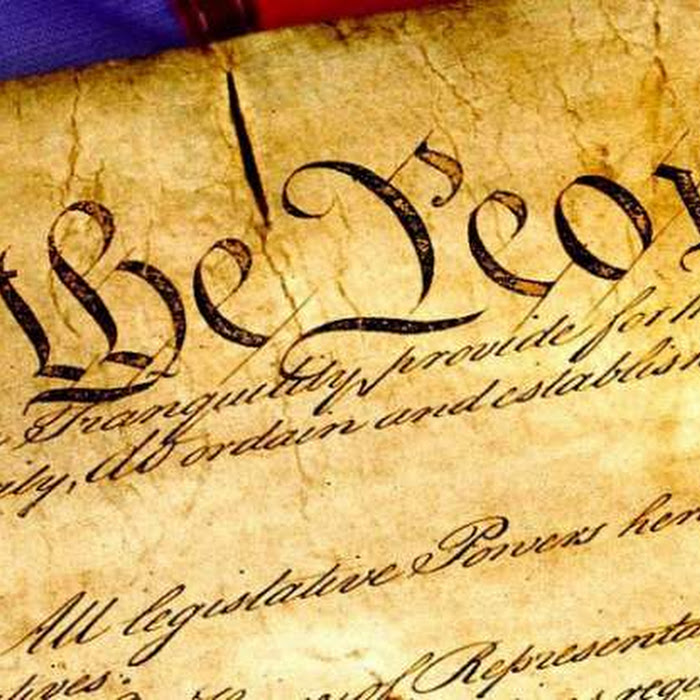 the Peop
Tranquility, provide for
ily, do ordain and establish
All legislative Powers her
tives.
of Representa
reg